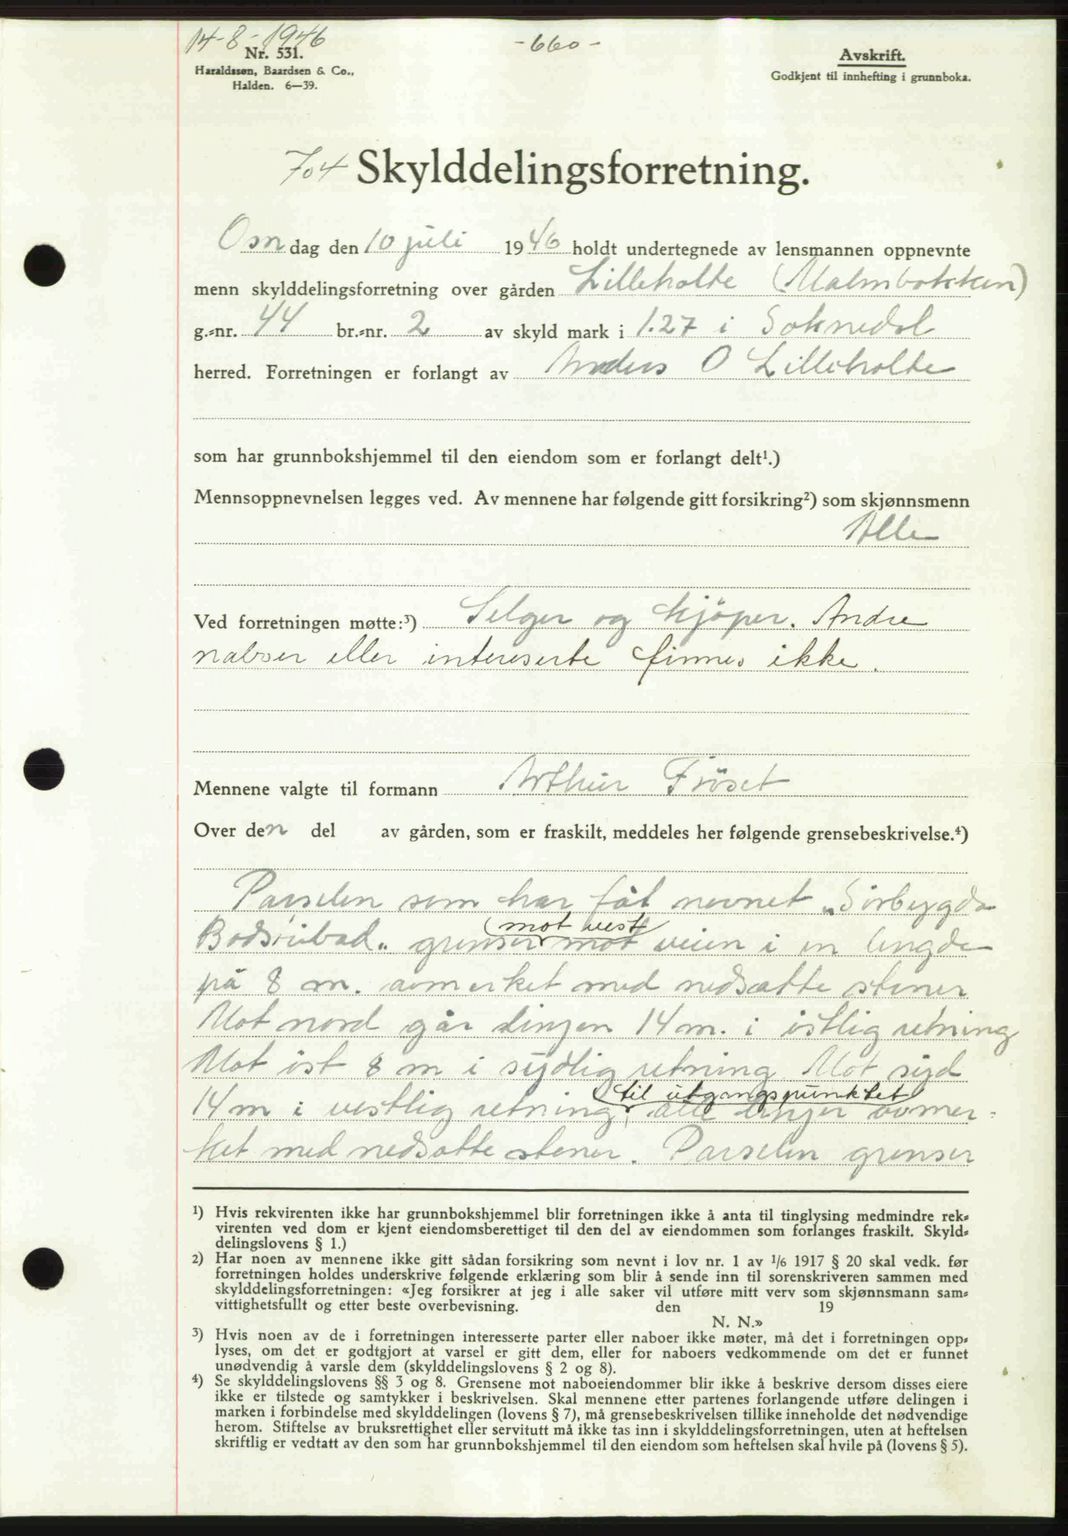 14-8-1946
-660-
Nr. 531.
Haraldssøn, Baardsen & Co.,
Halden. 6—39.
Avskrift.
Godkjent til innhefting i grunnboka.
704 Skylddelingsforretning.
Onsdag den 10 juli 1946 holdt undertegnede av lensmannen oppnevnte
menn skylddelingsforretning over gården Lilleholte (Malmbakken)
g.-nr. 44 br.-nr. 2 av skyld mark i 1.27 i Soknedal
herred. Forretningen er forlangt av Anders O Lilleholte
som har grunnbokshjemmel til den eiendom som er forlangt delt¹.)
Mennsoppnevnelsen legges ved. Av mennene har følgende gitt forsikring²) som skjønnsmenn
Alle
Ved forretningen møtte:³) Selger og kjöper. Andre
naboer eller intereserte finnes ikke.
Mennene valgte til formann Arthur Fröset
Over den del av gården, som er fraskilt, meddeles her følgende grensebeskrivelse.⁴)
Parselen som har fåt nevnet „Sörbygda
Badstubad„ grenser (mot vest) mot veien i en lengde
på 8 m. avmerket med nedsatte stener
Mot nord går linjen 14 m. i östlig retning
Mot öst 8 m i sydlig retning Mot syd
14 m i vestlig retning, (til utgangspunktet) alle linjer avmer-
ket med nedsatte stener. Parselen grenser
¹) Hvis rekvirenten ikke har grunnbokshjemmel blir forretningen ikke å anta til tinglysing medmindre rek-
virenten ved dom er kjent eiendomsberettiget til den del av eiendommen som forlanges fraskilt. Skyld-
delingslovens § 1.)
²) Har noen av mennene ikke gitt sådan forsikring som nevnt i lov nr. 1 av ¹/6 1917 § 20 skal vedk. før
forretningen holdes underskrive følgende erklæring som blir å sende inn til sorenskriveren sammen med
skylddelingsforretningen: «Jeg forsikrer at jeg i alle saker vil utføre mitt verv som skjønnsmann sam-
vittighetsfullt og etter beste overbevisning. den 19
N. N.»
³) Hvis noen av de i forretningen interesserte parter eller naboer ikke møter, må det i forretningen opp-
lyses, om det er godtgjort at varsel er gitt dem, eller for naboers vedkommende om det er funnet
unødvendig å varsle dem (skylddelingslovens § 2 og 8).
⁴) Se skylddelingslovens §§ 3 og 8. Grensene mot naboeiendommer blir ikke å beskrive dersom disses eiere
ikke er tilstede og samtykker i beskrivelsen. Skal mennene etter partenes forlangende utføre delingen i
marken i forbindelse med skylddelingen (lovens § 7), må grensebeskrivelsen tillike inneholde det nødvendige
herom. Stiftelse av bruksrettighet eller servitutt må ikke tas inn i skylddelingsforretningen, uten at heftelsen
skriftlig er vedtatt av den som har grunnbokshjemmel til den eiendom som heftelsen skal hvile på (lovens § 5).